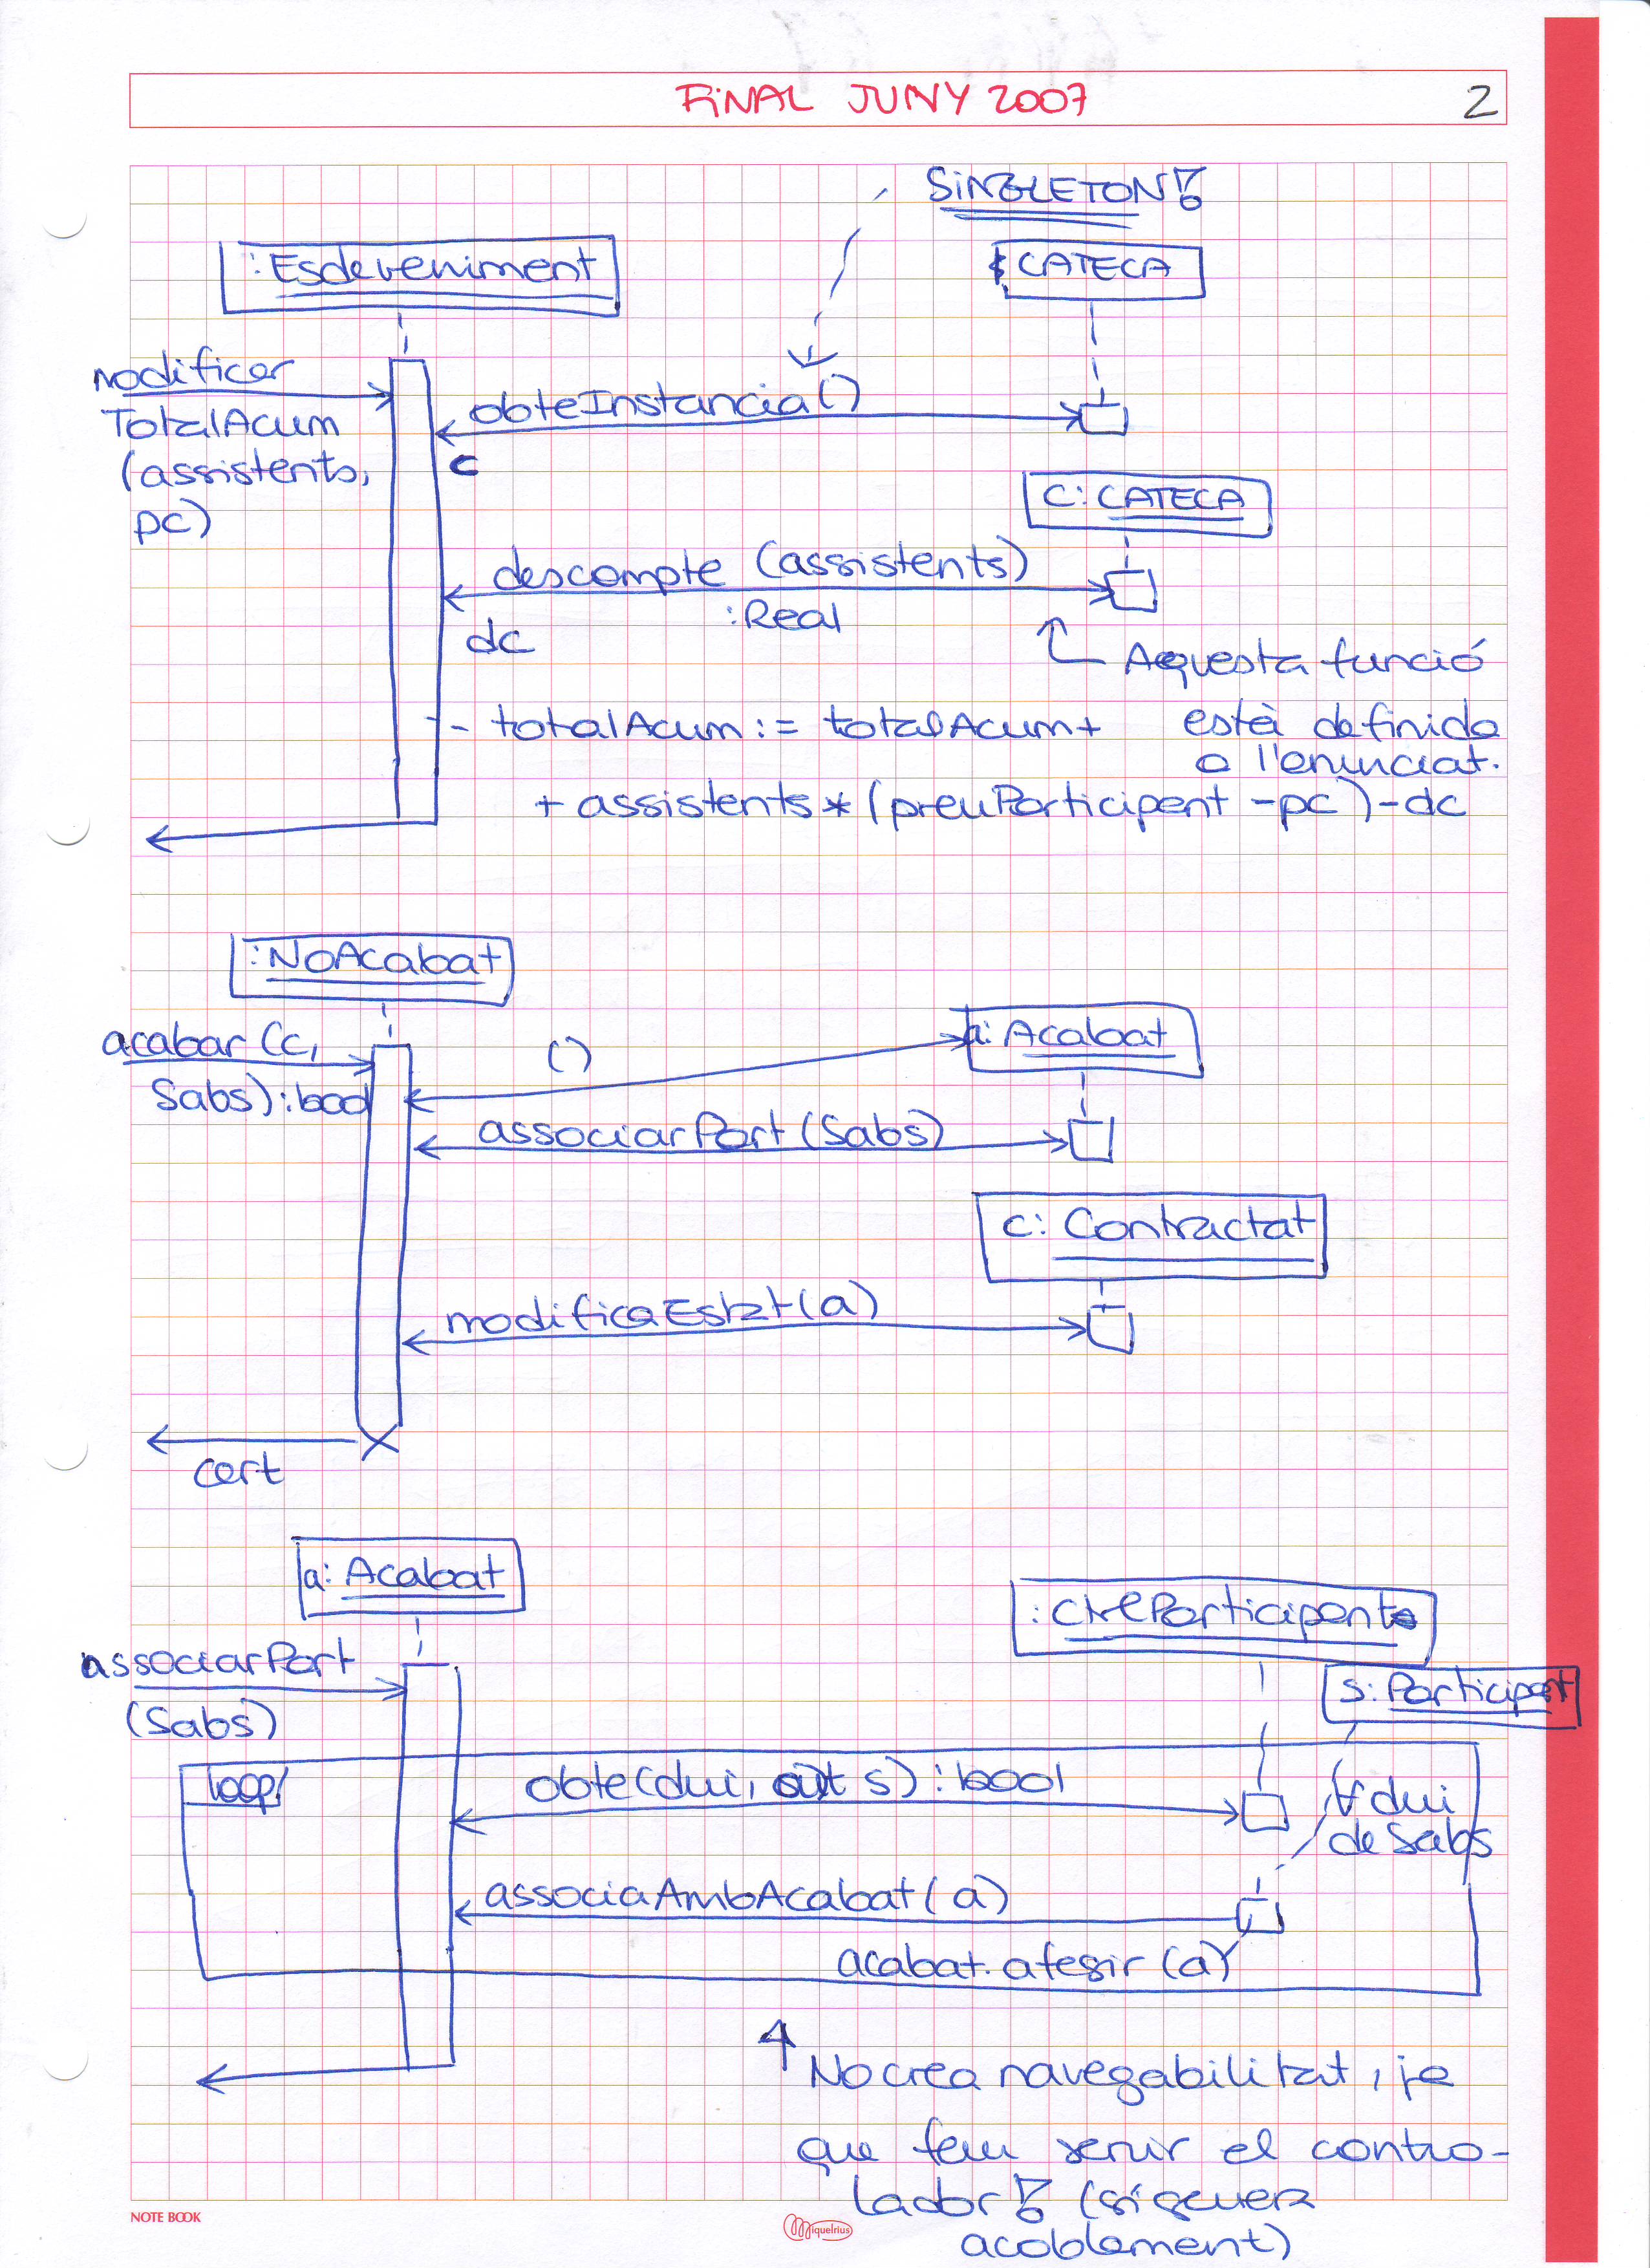 FINAL JUNY 2007
2
SINGLETON!!
:Esdeveniment
CATECA
modificar
TotalAcum
(assistents,
pc)
obteInstancia()
c
c: CATECA
descompte (assistents)
:Real
dc
Aquesta funció
està definida
a l'enunciat.
- totalAcum := totalAcum +
+ assistents * (preuParticipant - pc) - dc
:NoAcabat
acabar (c,
Sabs) : bool
()
a: Acabat
associarPart (Sabs)
c: Contractat
modificaEstat (a)
cert
a: Acabat
:CtrlParticipants
associarPart
(Sabs)
s: Participant
loop
obte(dui, out s) : bool
∀ dui
de Sabs
associaAmbAcabat (a)
acabat.afegir (a)
No crea navegabilitat, ja
que fem servir el contro-
lador!! (sí genera
acoblament)
NOTE BOOK
Miquelrius